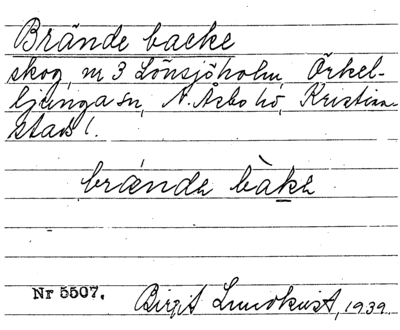 Brände backe
skog, nr 3 Lönsjöholm, Örkel-
ljunga sn, N. Åsbo hd, Kristian-
stads l.
brǽnda bàka
Nr 5507.
Birgit Lundkvist, 1939.